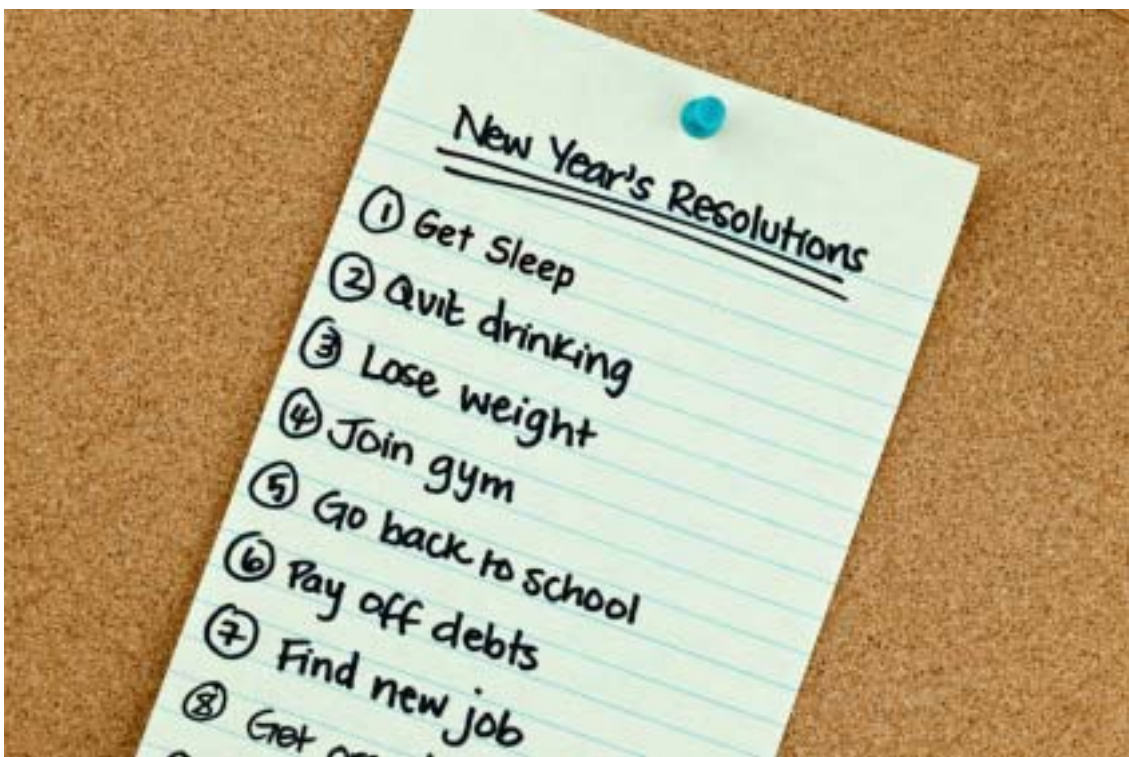 New Year's Resolutions
① Get Sleep
② Quit drinking
③ Lose weight
④ Join gym
⑤ Go back to school
⑥ Pay off debts
⑦ Find new job
⑧ Get